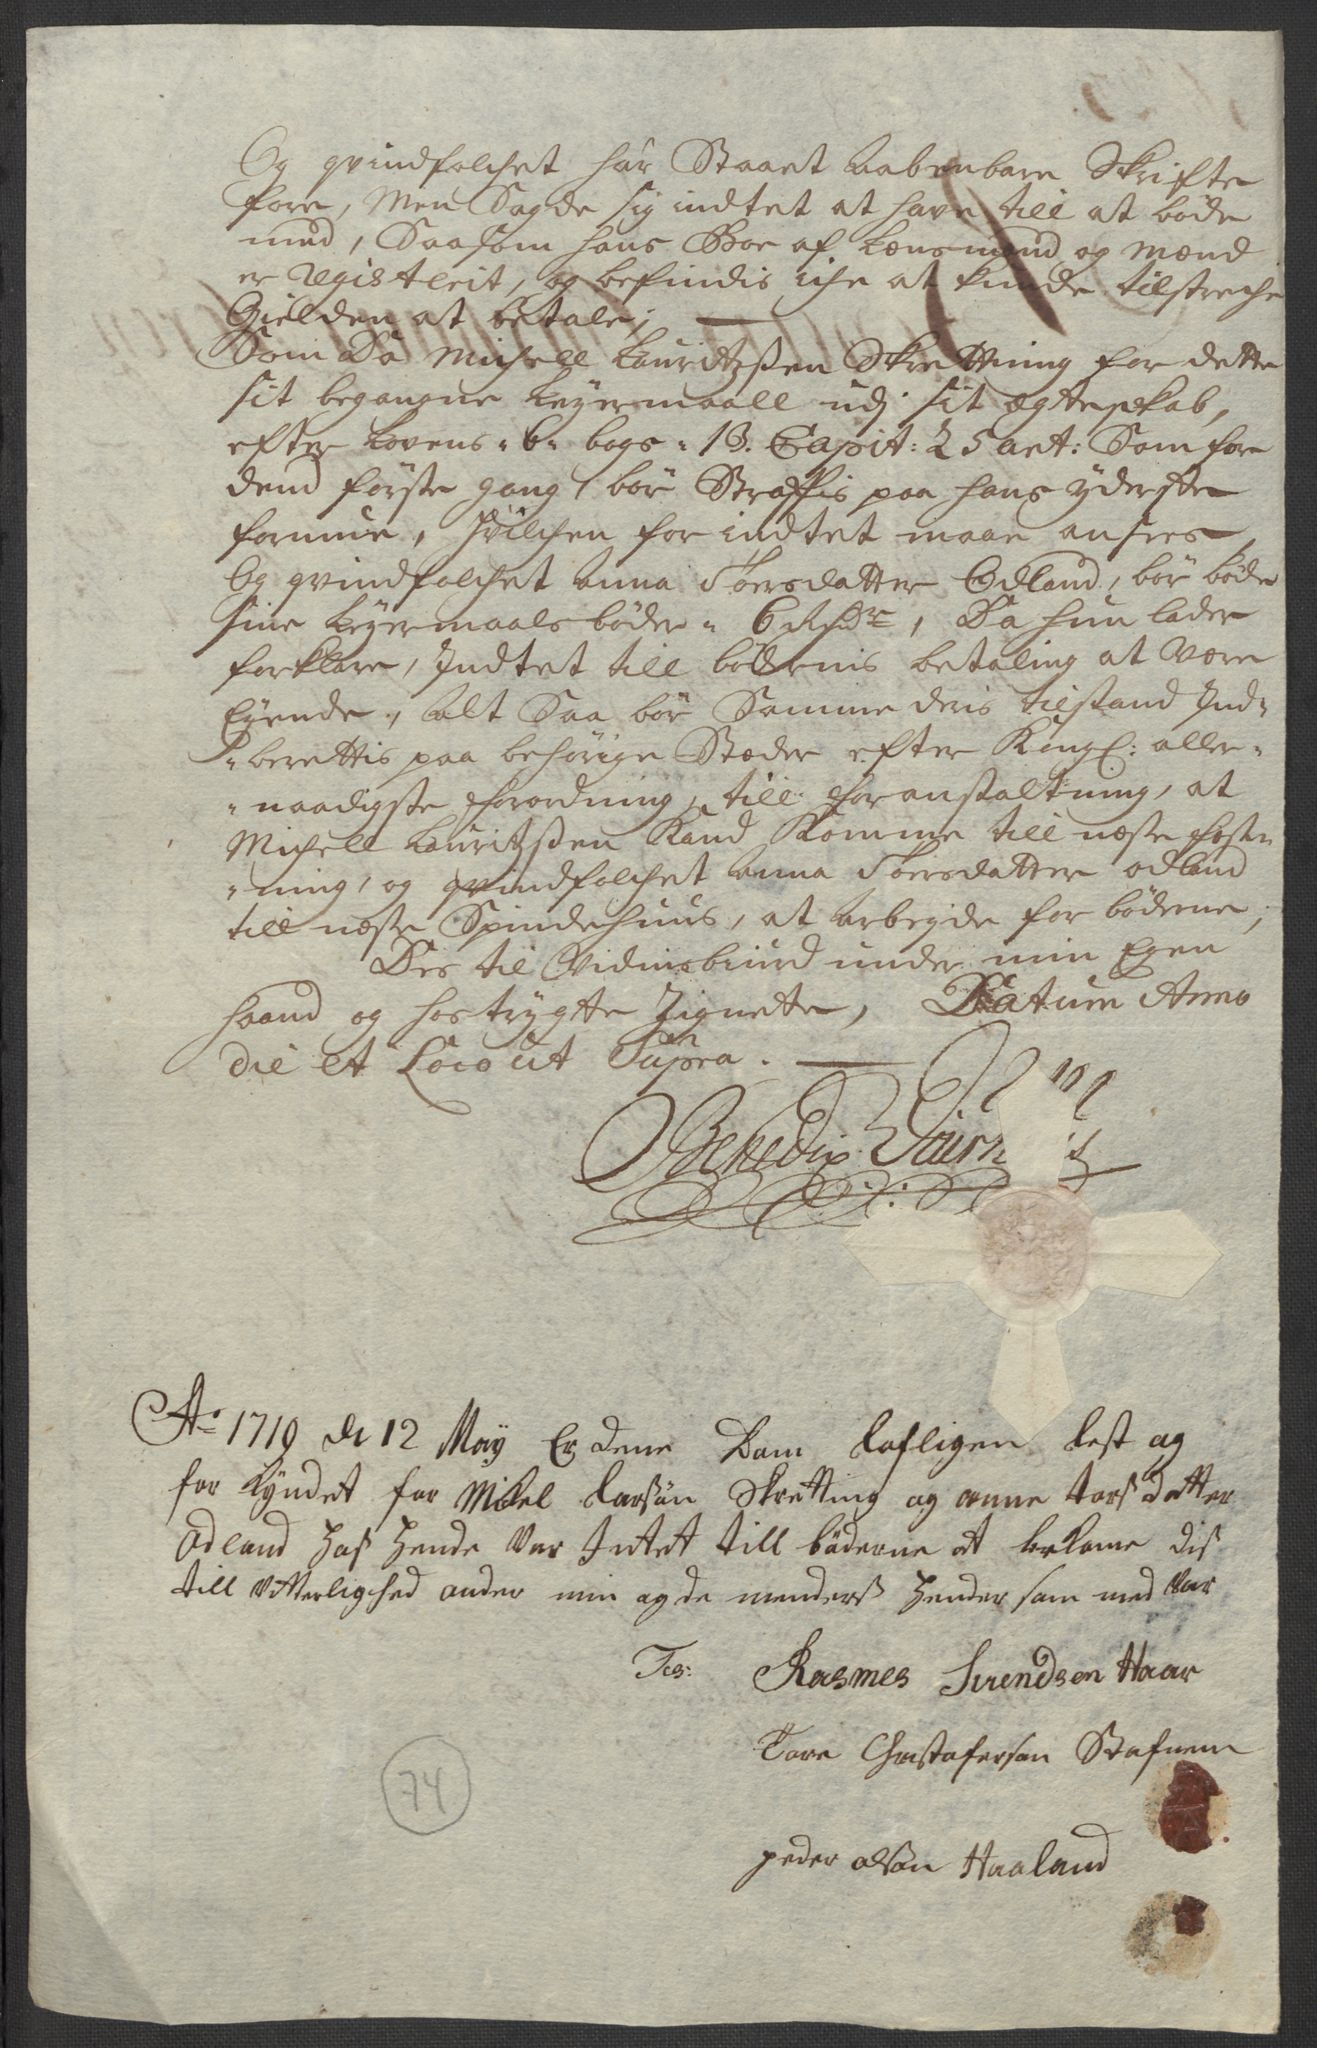 Og qvindfolchet har Staaet aabenbare Skrifte
fore, Men Sagde sig indtet at have till at böde
med, Saasom hans Boe af Lensmand og mænd
er registreit, og befindis iche at kunde tilstreche
Gielden at betale;
Som Da Michell Lauritzsen Skrettning for dette
sit begangne Leyermaall udj sit ægteskab,
efter Lovens 6 bogs 13. Capit: 25 art: Som for
dend förste gang bör Straffis paa hans yderste
formue, hvilchen for indtet maae ansees,
Og qvindfolchet Anna Toersdatter Odland, bör böde
sine Leyermaals böder 6 Rdr, Da hun lader
forklare, Indtet till bödernis betaling at være
Eyende, Alt Saa bör Samme deris tilstand Ind-
berettis paa behörige Stæder efter Kongl: aller-
naadigste forordning, till foranstaltning, at
Michell Lauritzsen Kand Komme till næste fhæst-
ning, og qvindfolchet Anna Toersdatter odland
till neste Spindehuus, at arbeyde for böderne;
Des til Vidnisbiurd under min Egen
haand og hos trygte Zignette, Datum Anno
die et Loco ut Supra.
Benedix
Ao 1710 d 12 Maÿ Er dene Dom lofligen lest og
for kyndet for Mikel Larsön Skretting og anne torsdatter
Odland hos hende var Intet till böderne at bekome dis
till vitterlighed under min og de menders hender som med var
Tes: Rasmes Surendsen Haar
Tore Christofersøn Stafnem
peder olsön Haaland
74